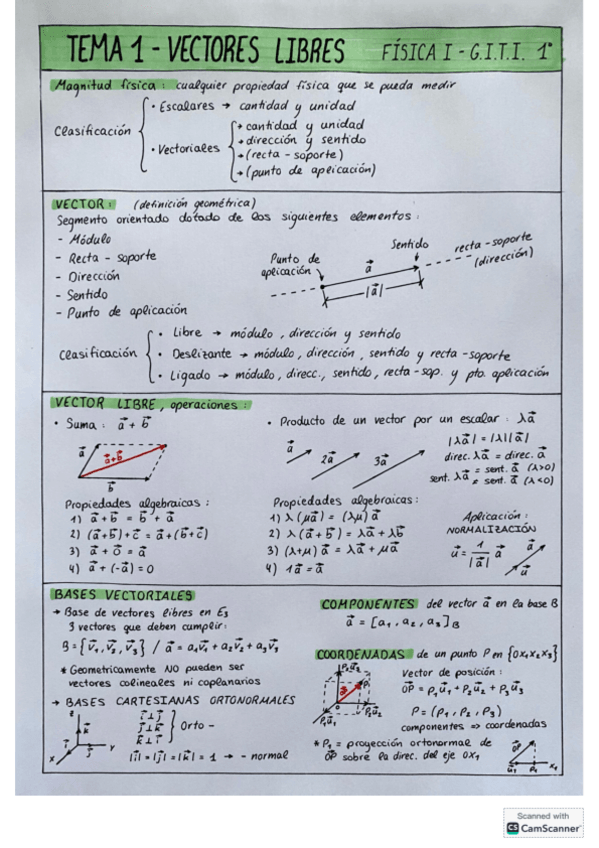 TEMA 1 - VECTORES LIBRES FÍSICA I - G.I.T.I. 1º
Magnitud física : cualquier propiedad física que se pueda medir
Clasificación
• Escalares → cantidad y unidad
• Vectoriales
→ cantidad y unidad
→ dirección y sentido
→ (recta - soporte)
→ (punto de aplicación)
VECTOR : (definición geométrica)
Segmento orientado dotado de los siguientes elementos :
- Módulo
- Recta - soporte
- Dirección
- Sentido
- Punto de aplicación
Punto de aplicación
Sentido
recta - soporte (dirección)
a⃗
|a⃗|
Clasificación
• Libre → módulo, dirección y sentido
• Deslizante → módulo, dirección, sentido y recta - soporte
• Ligado → módulo, direcc., sentido, recta - sop. y pto. aplicación
VECTOR LIBRE, operaciones :
• Suma : a⃗ + b⃗
a⃗
a⃗+b⃗
b⃗
Propiedades algebraicas :
1) a⃗ + b⃗ = b⃗ + a⃗
2) (a⃗+b⃗)+c⃗ = a⃗+(b⃗+c⃗)
3) a⃗ + 0⃗ = a⃗
4) a⃗ + (-a⃗) = 0
• Producto de un vector por un escalar : λa⃗
a⃗ 2a⃗ 3a⃗
|λa⃗| = |λ||a⃗|
direc. λa⃗ = direc. a⃗
sent. λa⃗ = sent. a⃗ (λ>0)
≠ sent. a⃗ (λ<0)
Propiedades algebraicas :
1) λ(μa⃗) = (λμ)a⃗
2) λ(a⃗ + b⃗) = λa⃗ + λb⃗
3) (λ+μ)a⃗ = λa⃗ + μa⃗
4) 1a⃗ = a⃗
Aplicación :
NORMALIZACIÓN
u⃗ = 1/|a⃗| a⃗
a⃗
u⃗
BASES VECTORIALES
→ Base de vectores libres en E3
3 vectores que deben cumplir :
B = {v⃗1, v⃗2, v⃗3} / a⃗ = a1v⃗1 + a2v⃗2 + a3v⃗3
* Geometricamente NO pueden ser
vectores colineales ni coplanarios
→ BASES CARTESIANAS ORTONORMALES
z
k⃗
i⃗ j⃗
x y
i⃗ ⊥ j⃗
j⃗ ⊥ k⃗
k⃗ ⊥ i⃗
Orto -
|i⃗| = |j⃗| = |k⃗| = 1 → - normal
COMPONENTES del vector a⃗ en la base B
a⃗ = [a1, a2, a3]B
COORDENADAS de un punto P en {0x1x2x3}
Vector de posición :
OP⃗ = p1u⃗1 + p2u⃗2 + p3u⃗3
P = (p1, p2, p3)
componentes => coordenadas
* P1 = proyección ortonormal de
OP⃗ sobre la direc. del eje 0x1
OP⃗
u⃗1 P1 x1
Scanned with
CS CamScanner